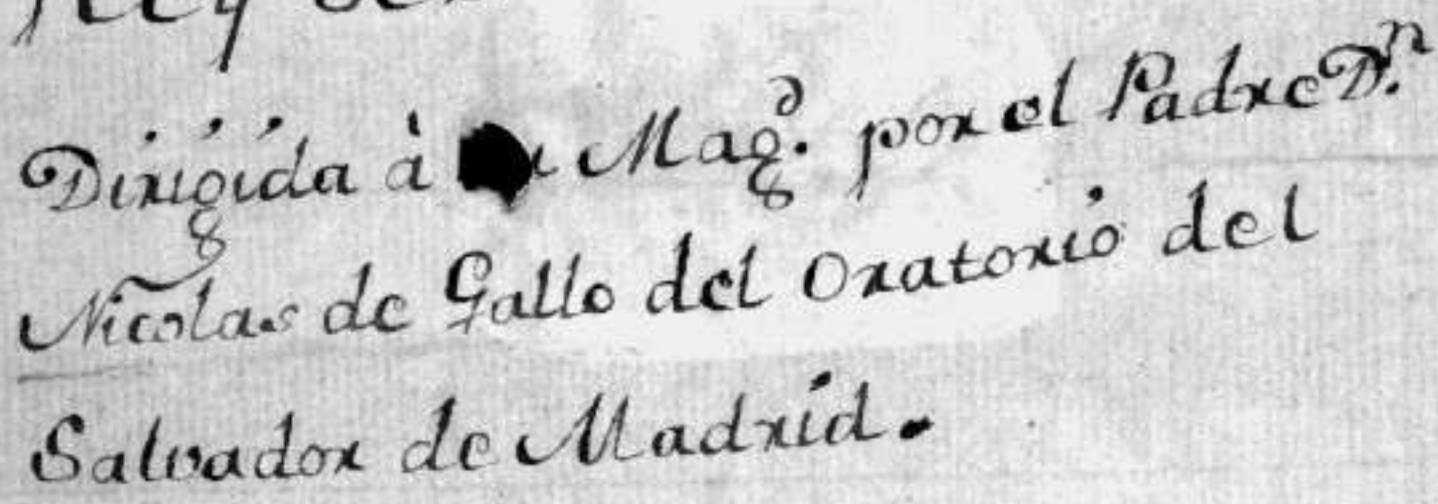 Dirigida à Mag.ᵈ por el Padre D.ⁿ
Nicolas de Gallo del Oratorio del
Salvador de Madrid.